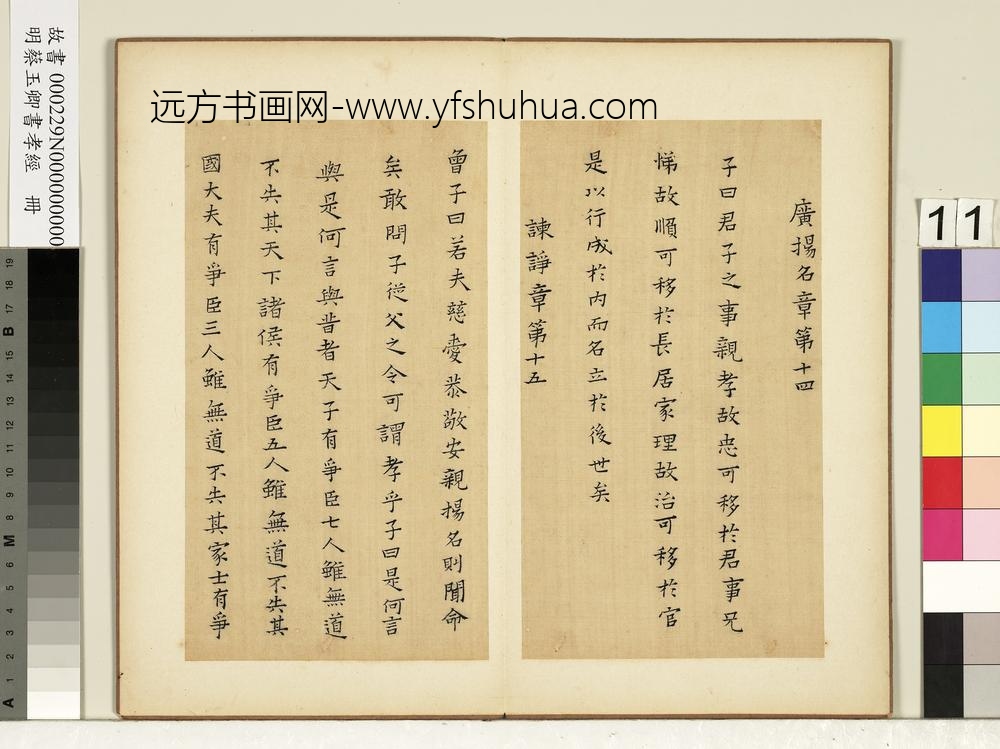 故書 000229N000000000
明蔡玉卿書孝經 冊
远方书画网-www.yfshuhua.com
廣揚名章第十四
子曰君子之事親孝故忠可移於君事兄
悌故順可移於長居家理故治可移於官
是以行成於内而名立於後世矣
諫諍章第十五
曾子曰若夫慈愛恭敬安親揚名則聞命
矣敢問子從父之令可謂孝乎子曰是何言
與是何言與昔者天子有爭臣七人雖無道
不失其天下諸侯有爭臣五人雖無道不失其
國大夫有爭臣三人雖無道不失其家士有爭
11
A 1 2 3 4 5 6 M 8 9 10 11 12 13 14 15 B 17 18 19